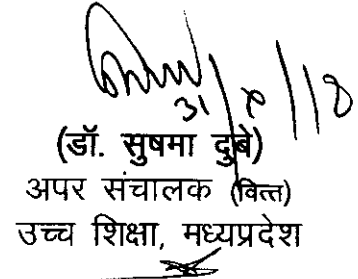 31/8/18
(डॉ. सुषमा दुबे)
अपर संचालक (वित्त)
उच्च शिक्षा, मध्यप्रदेश